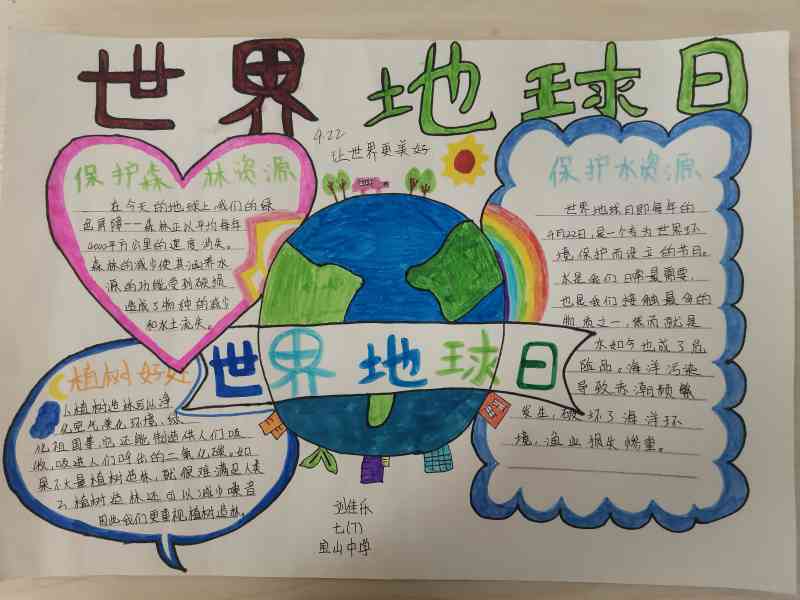 世界地球日
4.22
让世界更美好
保护森林资源
在今天的地球上，我们的绿
色屏障——森林正以平均每年
4000平方公里的速度消失。
森林的减少使其涵养水
源的功能受到破损
造成了物种的减少
和水土流失。
保护水资源
世界地球日即每年的
4月22日，是一个专为世界环
境保护而设立的节日。
水是我们日常最需要，
也是我们接触最多的
物质之一，然而就是
水如今也成了危
险品。海洋污染
导致赤潮频繁
发生，破坏了海洋环
境，渔业损失惨重。
世界地球日
植树好处
1.植树造林可以净
化空气，美化环境，绿
化祖国，它还能制造供人们吸
收，吸进人们呼出的二氧化碳。如
果不大量植树造林，就很难满足人类
2.植树造林还可以减少噪音
因此我们更重视植树造林。
刘佳乐
七(7)
宝山中学